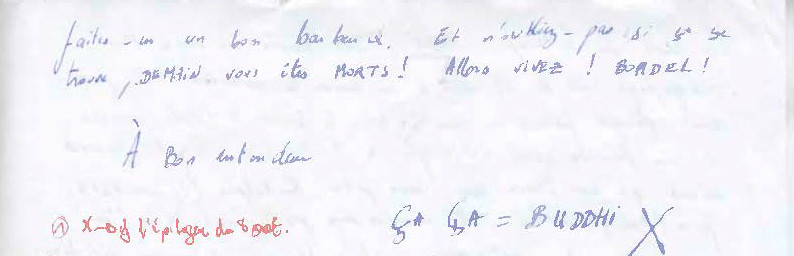 faites-en un bon barbeux. Et n'oubliez-pas si ça se
trouve, DEMAIN vous êtes MORTS! Allons VIVEZ! BORDEL!
À Bon entendeur
l'épilogue du
ÇA ÇA = BUDDHI X